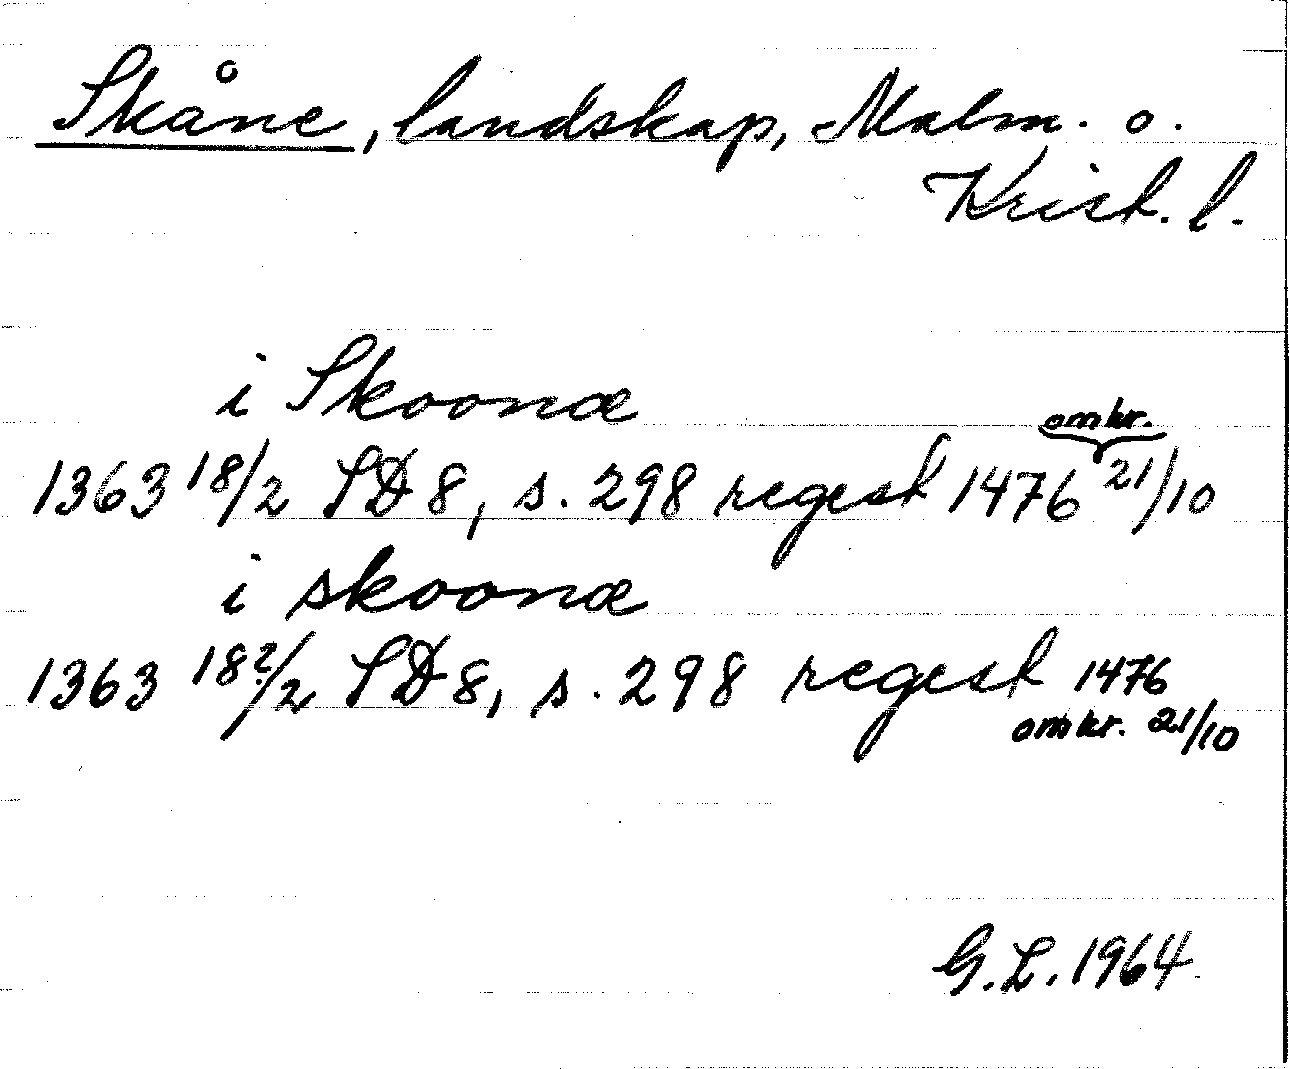 Skåne, landskap, Malm. o.
Krist. l.
i Skoonæ
omkr.
1363 18/2 SD 8, s. 298 regest 1476 21/10
i skoonæ
1363 18?/2 SD 8, s. 298 regest 1476
omkr. 21/10
G.L. 1964